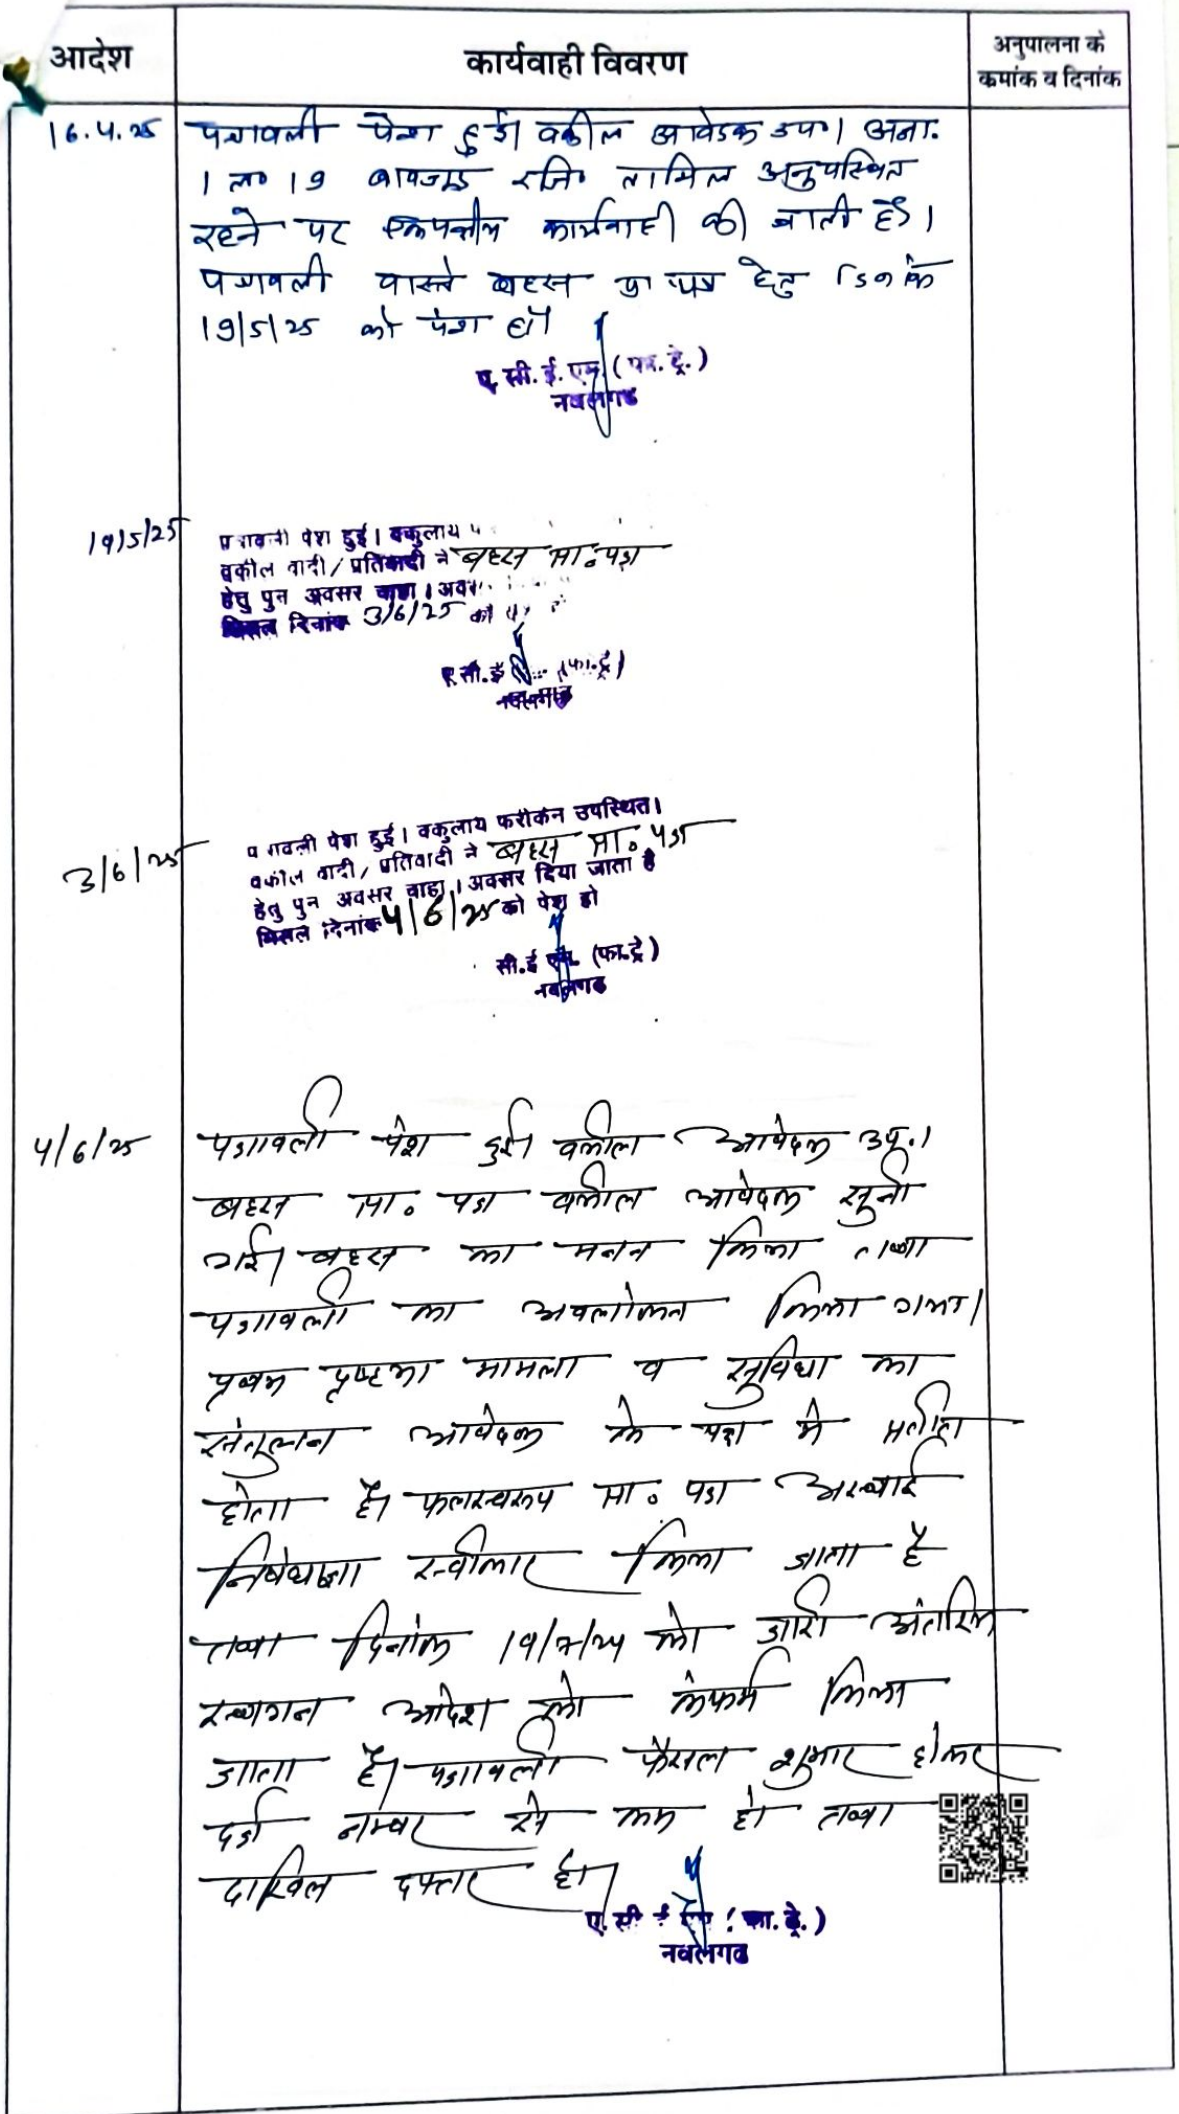 आदेश
कार्यवाही विवरण
अनुपालना के
कमांक व दिनांक
16.4.25
पत्रावली पेश हुई। वकील आवेदक उप०। अना.
1 ल० 19 बावजूद रजि० तामिल अनुपस्थित
रहने पर एकपक्षीय कार्यवाही की जाती है।
पत्रावली वास्ते बहस प्रा पत्र हेतु दिनांक
19/5/25 को पेश हो
ए. सी. ई. एम. (फा. ट्रे.)
नवलगढ
19/5/25
पत्रावली पेश हुई। वकुलाय
वकील वादी/प्रतिवादी ने बहस प्रा० पत्र
हेतु पुन अवसर चाहा। अवसर
मिसल दिनांक 3/6/25 को
ए सी. ई (फा.ट्रे)
नवलगढ
3/6/25
पत्रावली पेश हुई। वकुलाय फरीकेन उपस्थित।
वकील वादी/प्रतिवादी ने बहस प्रा० पत्र
हेतु पुन अवसर चाहा। अवसर दिया जाता है
मिसल दिनांक 4/6/25 को पेश हो
सी.ई एम. (फा.ट्रे)
नवलगढ
4/6/25
पत्रावली पेश हुई। वकील आवेदक उप.।
बहस प्रा० पत्र वकील आवेदक सुनी
गई। बहस का मनन किया तथा
पत्रावली का अवलोकन किया गया।
प्रथम दृष्टया मामला व सुविधा का
संतुलन आवेदक के पक्ष मे प्रतीत
होता है। फलस्वरूप प्रा० पत्र अस्थाई
निषेधाज्ञा स्वीकार किया जाता है
तथा दिनांक 19/7/24 को जारी अंतरिम
स्थगन आदेश को कंफर्म किया
जाता है। पत्रावली फैसल शुमार होकर
दर्ज नम्बर से कम हो तथा
दाखिल दफ्तर हो।
ए. सी ई एम (फा. ट्रे.)
नवलगढ